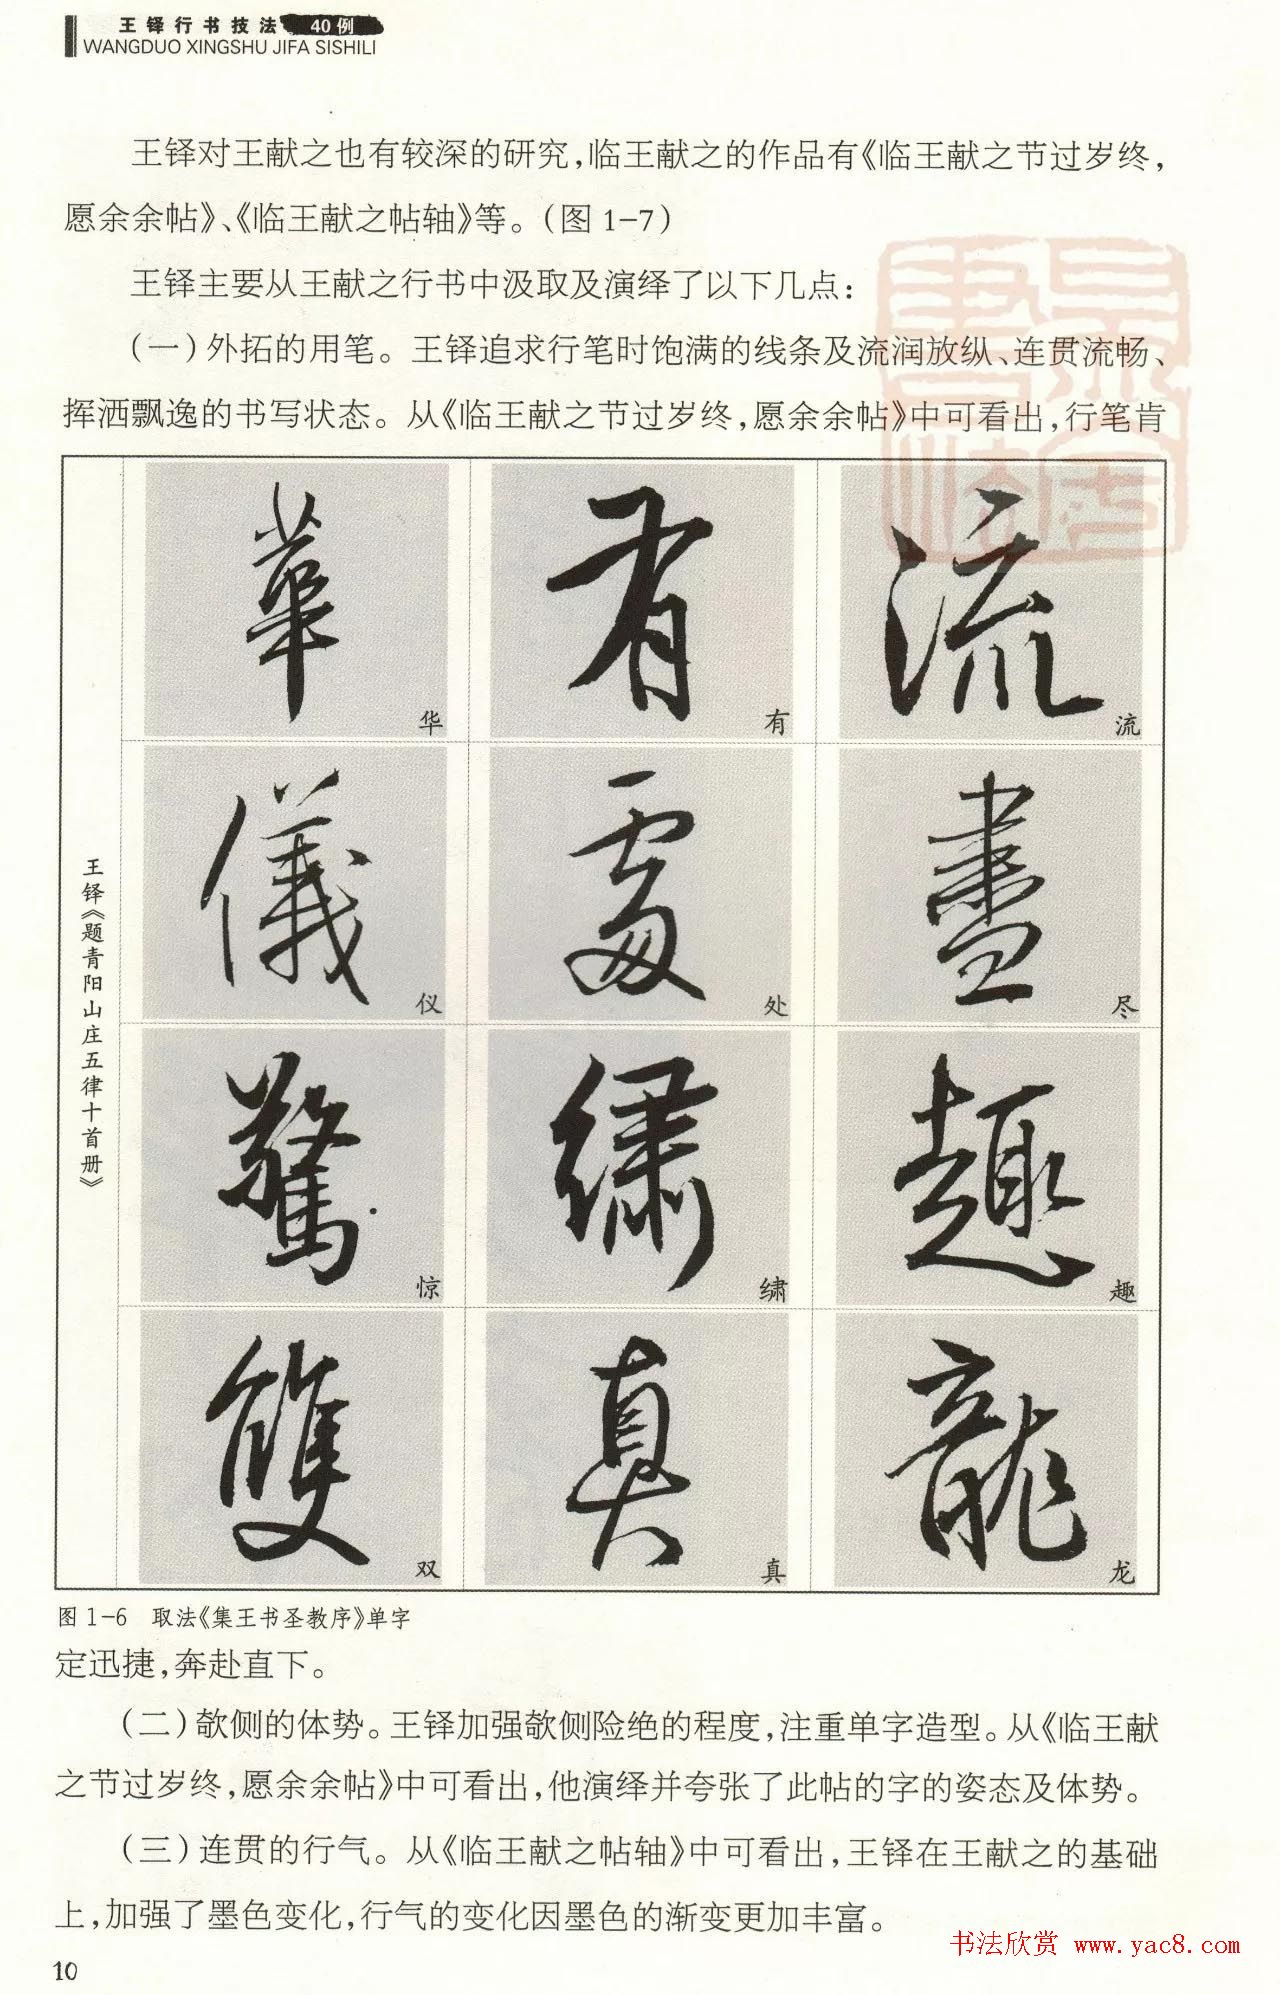 王铎行书技法 40例
WANGDUO XINGSHU JIFA SISHILI
王铎对王献之也有较深的研究，临王献之的作品有《临王献之节过岁终，
愿余余帖》、《临王献之帖轴》等。（图1-7）
王铎主要从王献之行书中汲取及演绎了以下几点：
（一）外拓的用笔。王铎追求行笔时饱满的线条及流润放纵、连贯流畅、
挥洒飘逸的书写状态。从《临王献之节过岁终，愿余余帖》中可看出，行笔肯
王铎《题青阳山庄五律十首册》
華 华
有 有
流 流
儀 仪
處 处
盡 尽
驚 惊
繡 绣
趣 趣
雙 双
真 真
龍 龙
图1-6 取法《集王书圣教序》单字
定迅捷，奔赴直下。
（二）欹侧的体势。王铎加强欹侧险绝的程度，注重单字造型。从《临王献
之节过岁终，愿余余帖》中可看出，他演绎并夸张了此帖的字的姿态及体势。
（三）连贯的行气。从《临王献之帖轴》中可看出，王铎在王献之的基础
上，加强了墨色变化，行气的变化因墨色的渐变更加丰富。
书法欣赏 www.yac8.com
10